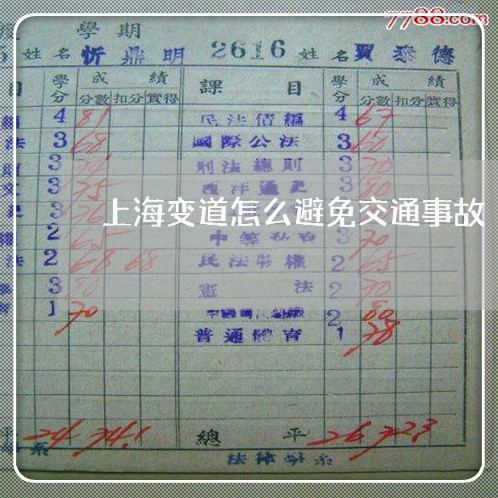 7788.com
度 學期
5 姓名 忻鼎明 2616 姓名 賈泰德
目 學分 成績 課目 學分 成績
分數 扣分 實得 分數 扣分 實得
4 81 民法債編 4 67
法 3 68 國際公法 3 60
3 刑法總則 3 70
3 75 西洋通史 3 80
上海变道怎么避免交通事故
2 65 3 70
法 2 68 68 民法物權 2 65
3 80 憲法 2 70
1 70 2 80
普通體育 1 78
平 24 74.1 總平 26 72.3
系 法律學系